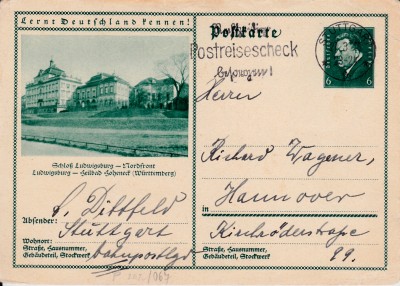 Lernt Deutschland kennen!
Postkarte
STUTTG
Postreisescheck
bequem!
6 6
Schloß Ludwigsburg – Nordfront
Ludwigsburg – Heilbad Hoheneck (Württemberg)
Herrn
Richard Wagener,
in Hannover
Kirchröderstraße
99.
Absender: S. Dittfeld
Stuttgart
Wohnort:
Straße, Hausnummer,
Gebäudeteil, Stockwerk
bahnpostlgd
Straße, Hausnummer,
Gebäudeteil, Stockwerk